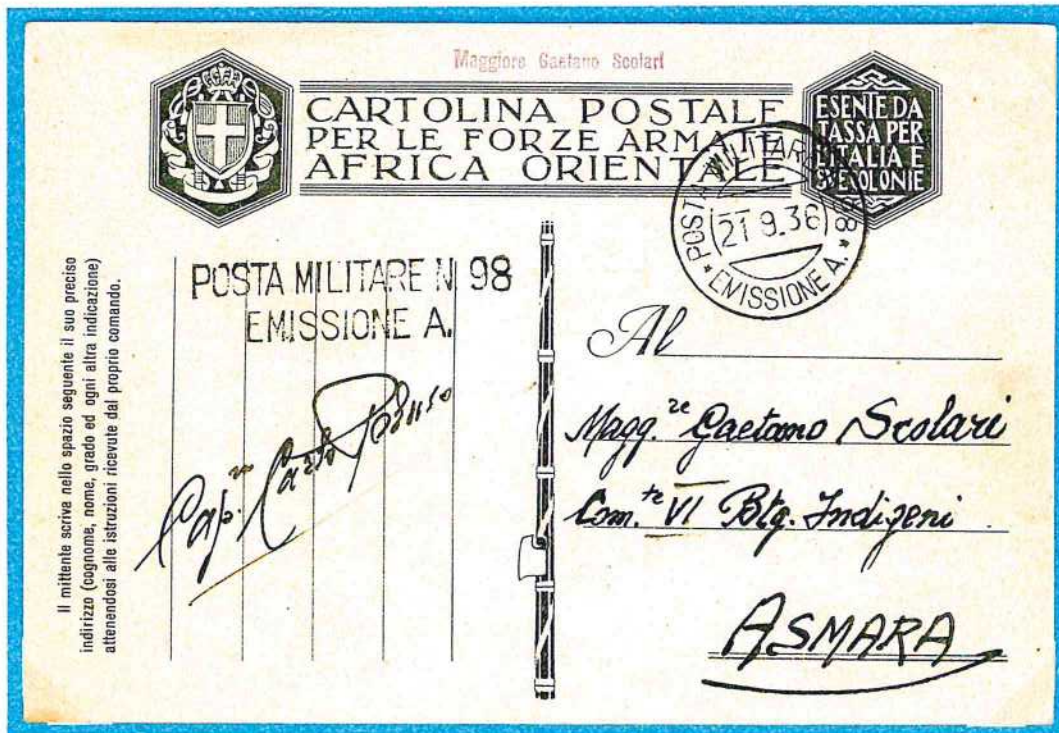 Maggiore Gaetano Scolari
CARTOLINA POSTALE
PER LE FORZE ARMATE
AFRICA ORIENTALE
ESENTE DA
TASSA PER
L'ITALIA E
SVE COLONIE
POSTA MILITARE N. 98
21 9.36
* EMISSIONE A. *
Il mittente scriva nello spazio seguente il suo preciso
indirizzo (cognome, nome, grado ed ogni altra indicazione)
attenendosi alle istruzioni ricevute dal proprio comando.
POSTA MILITARE N. 98
EMISSIONE A.
Cap. Carlo
Al
Magg.re Gaetano Scolari
Com.te VI Btg. Indigeni
ASMARA